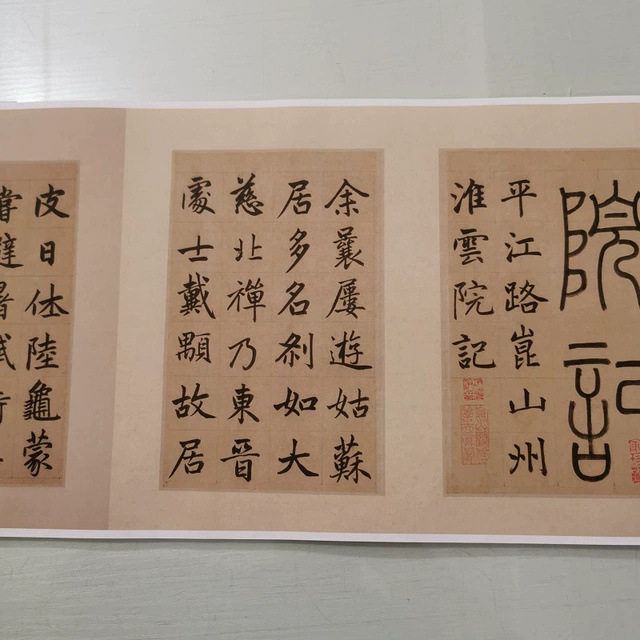 院記
平江路崑山州
淮雲院記
余曩屢遊姑蘇
居多名刹如大
慈北禪乃東晉
處士戴顒故居
皮日休陸龜蒙